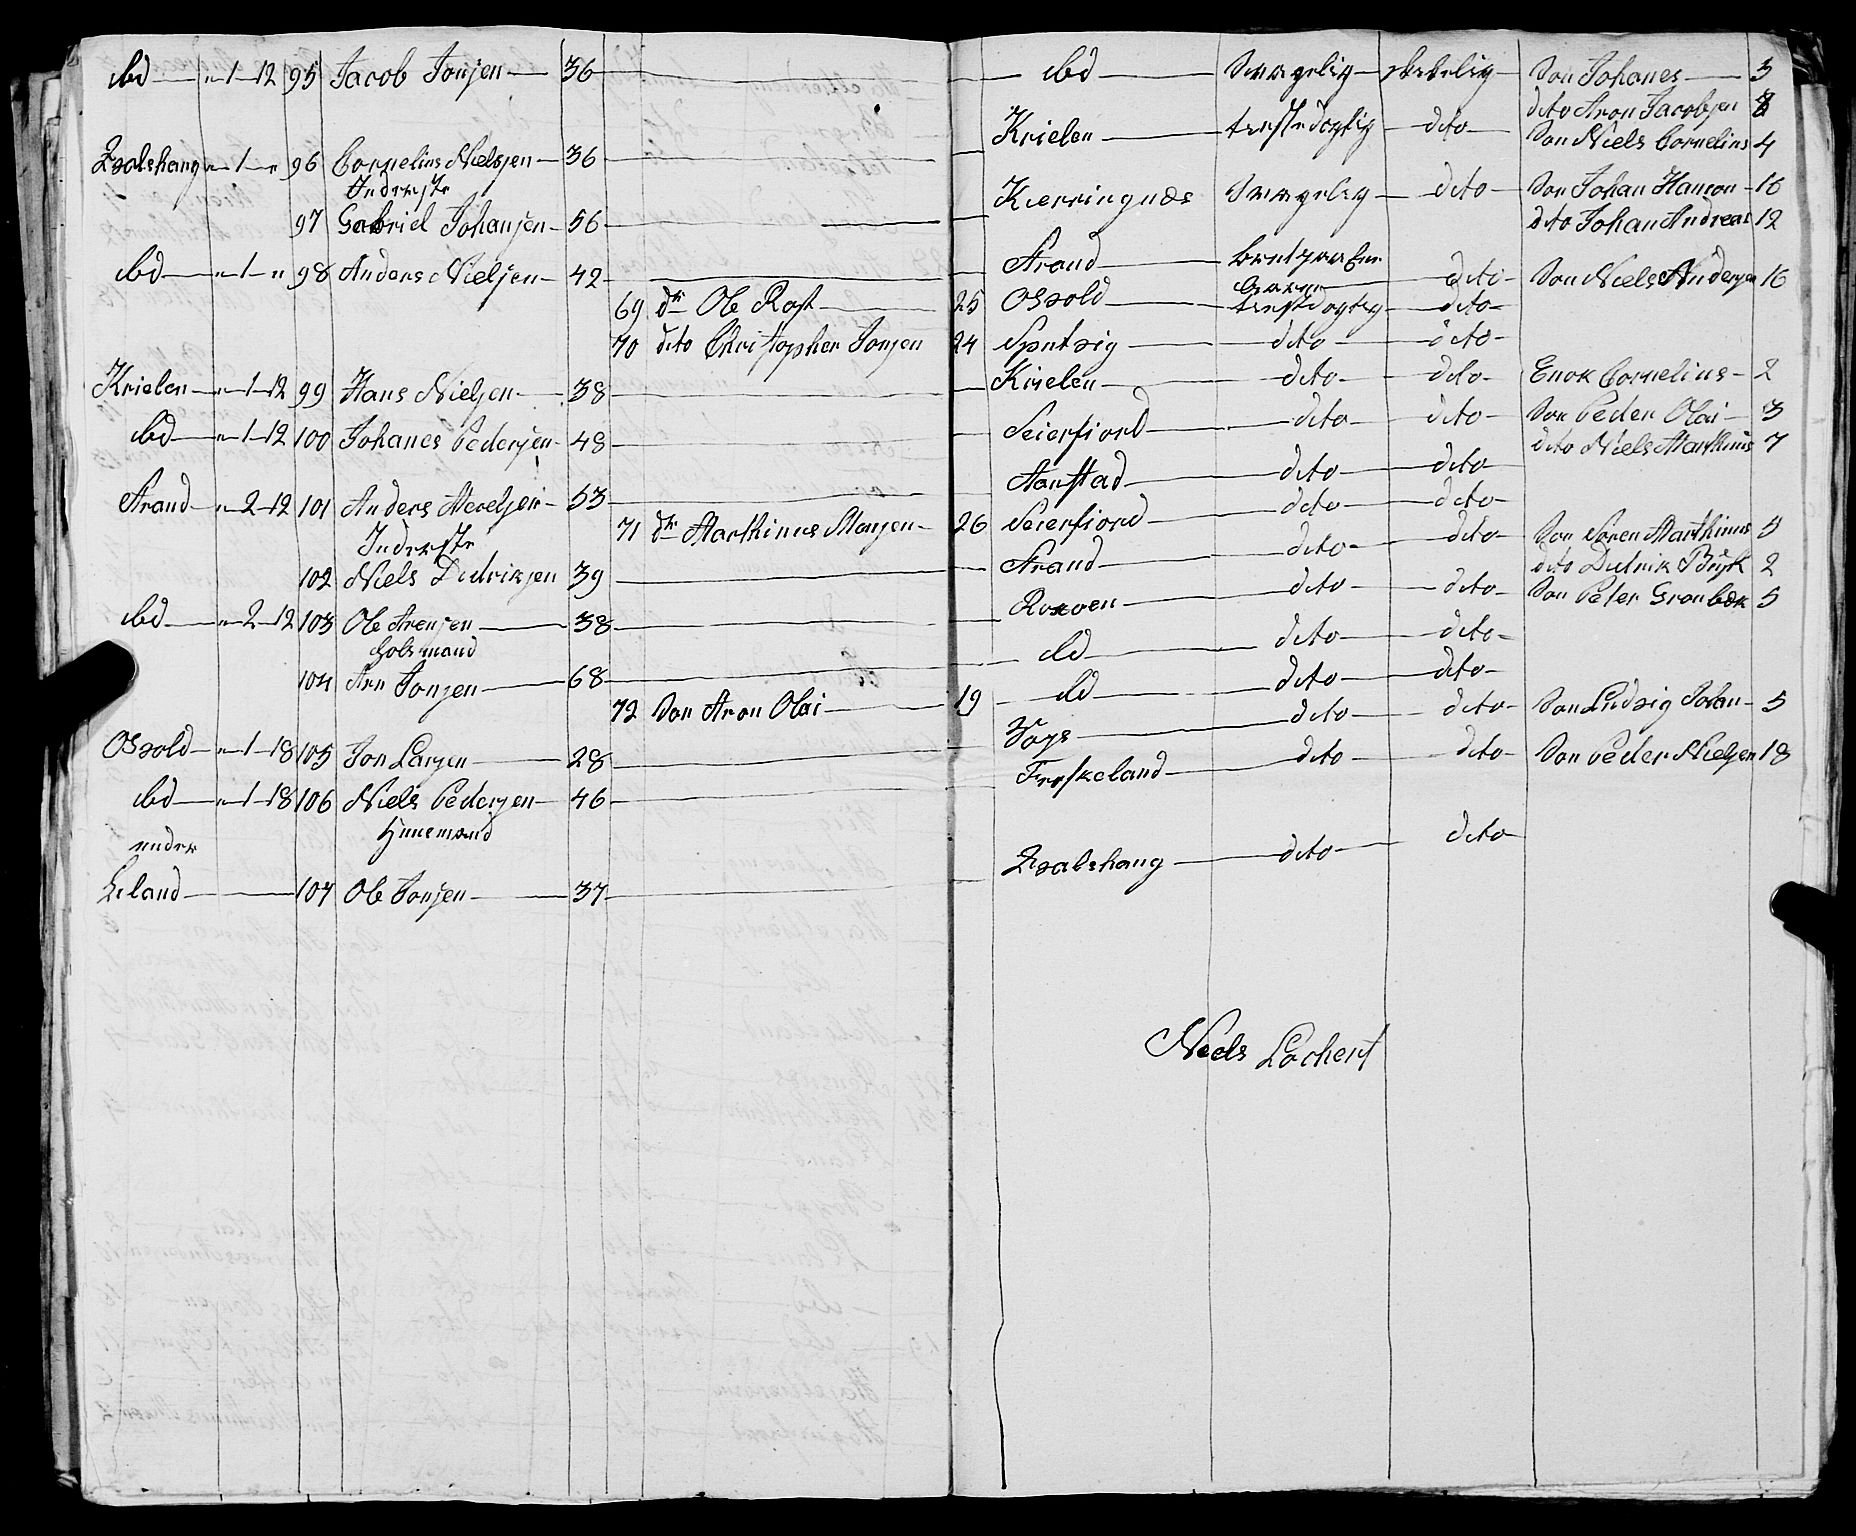 ibd — " 1 12 95 Jacob Jonsen — 36 — ibd — Svagelig — skikelig — Søn Johanes — 3
dito Aron Jacobsen 8
Qvalshaug " 1 " 96 Cornelius Nielsen — 36 — Krielen — tienstdygtig — dito — Søn Niels Cornelius 4
Inderste
97 Gabriel Johansen — 56 — Kierringnæs Svagelig — dito — Søn Johan Hanson — 16
dito Johan Andreas 12
ibd — " 1 " 98 Anders Nielsen — 42 — Strand — dito — Søn Niels Andersen 16
69 dr Ole Rost — 25 Osvold — tienstdygtig — dito
70 dito Christopher Jonsen 24 — dito — dito
Krielen — " 1 12 99 Hans Nielsen — 38 — Krielen — dito — dito — Enok Cornelius — 2
ibd — " 1 12 100 Johanes Pedersen — 48 — Seierfiord — dito — dito — Søn Peder Olai — 3
dito Niels Marthinus 7
Strand — " 2 12 101 Anders — 53 — Aanstad — dito — dito
71 dr Marthinus Monsen — 26 Seierfiord — dito — dito
Inderste
102 Niels Didriksen 39 — Strand — dito — dito — Søn Søren Marthinus 5
dito Didrik 2
ibd — " 2 12 103 Ole Arensen — 38 — dito — dito — Søn Peter Grønbæk 5
Holsmand
104 Arn Jonsen — 68 — ibd — dito — dito
72 Søn Aron Olai — 19 — ibd — dito — dito
Osvold — " 1 18 105 Jon Larsen — 28 — Vogs — dito — dito — Søn Ludvig Johan — 5
ibd — " 1 18 106 Niels Pedersen — 46 — Freskeland — dito — dito — Søn Peder Nielsen 18
Huusmand
under
Leland — 107 Ole Jonsen — 37 — Qvalshaug — dito — dito
Niels Lochert